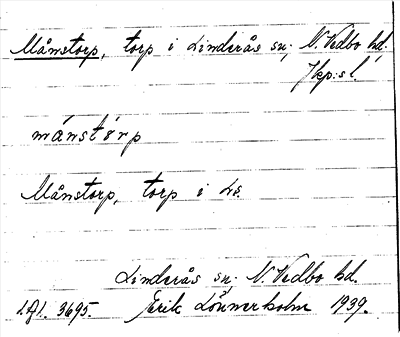 Månstorp, torp i Linderås sn; N. Vedbo hd.
Jkp:s l.
mánstòrp
Månstorp, torp i Ls.
Linderås sn; N. Vedbo hd.
Erik Lönnerholm 1939.